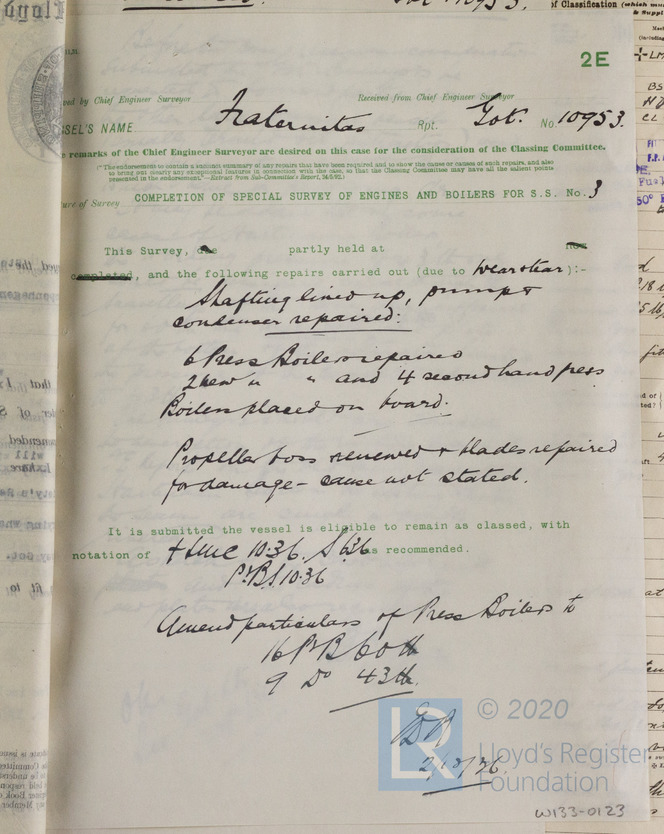 2E
ved by Chief Engineer Surveyor
Received from Chief Engineer Surveyor
SSEL'S NAME Fraternitas Rpt. Got. No. 10953.
e remarks of the Chief Engineer Surveyor are desired on this case for the consideration of the Classing Committee.
("The endorsement to contain a succinct summary of any repairs that have been required and to show the cause or causes of such repairs, and also
to bring out clearly any exceptional features in connection with the case, so that the Classing Committee may have all the salient points
presented in the endorsement."—Extract from Sub-Committee's Report,
ture of Survey COMPLETION OF SPECIAL SURVEY OF ENGINES AND BOILERS FOR S.S. No. 3
This Survey, due partly held at now
completed, and the following repairs carried out (due to wear & tear):-
Shafting lined up, pump &
condenser repaired:
6 Press Boilers repaired
2 new " " and 4 second hand press
Boilers placed on board.
Propeller boss renewed & blades repaired
for damage - cause not stated.
It is submitted the vessel is eligible to remain as classed, with
notation of + LMC 10.36. S 6.36 as recommended.
Pr.B.S 10.36
Amend particulars of Press Boilers to
16 Pr B 60 lb
9 Do 43 lb.
LR
© 2020
Lloyd's Register
Foundation
W133-0123